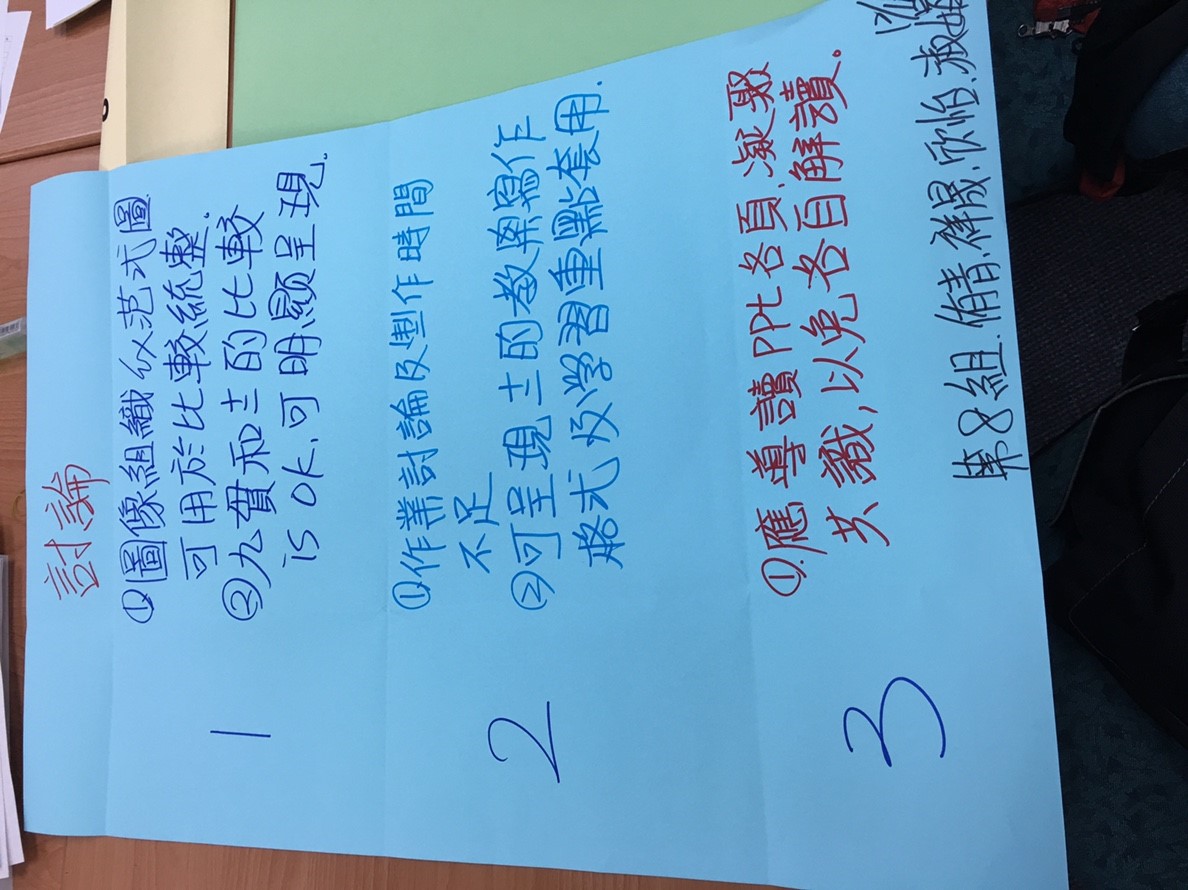 討論
1
①圖像組織以范式圖
可用於比較統整。
②九貫和士的比較
is OK.可明顯呈現。
2
①作業討論及製作時間
不足
②可呈現士的教案寫作
格式及学習重點套用.
3
①.應導讀PPt各頁.凝聚
共識,以免各自解讀。
第8組.倩青.祥晟.欣怡.淑娟